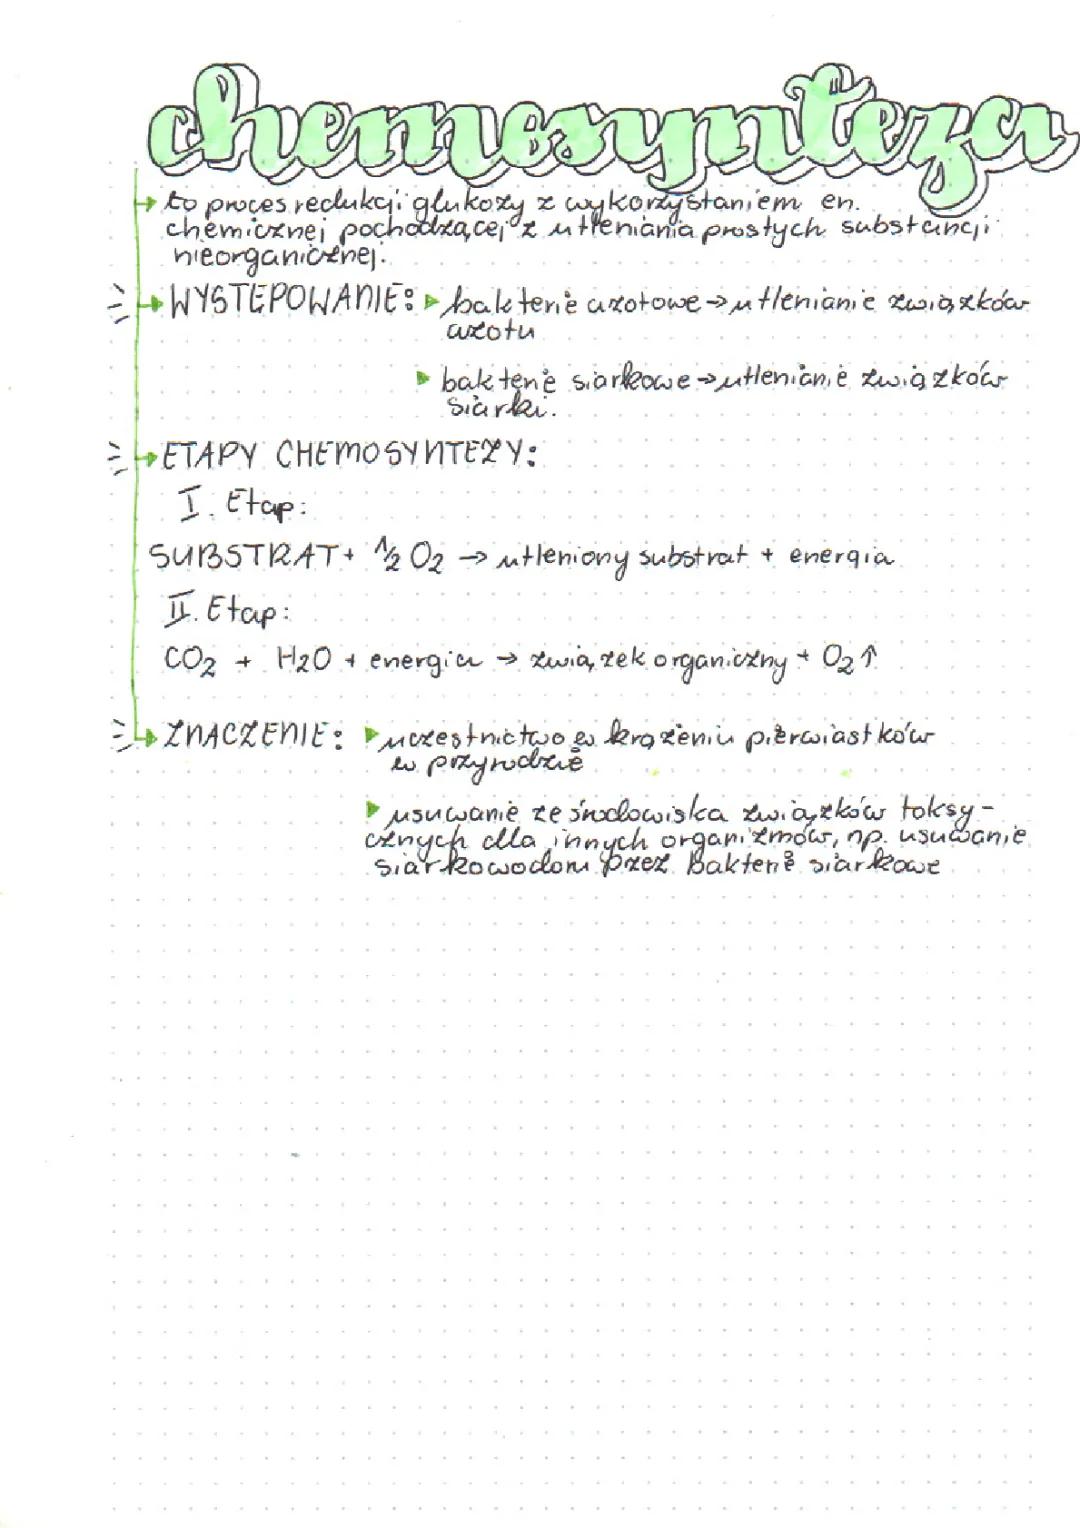 chemosynteza
→ to proces redukcji glukozy z wykorzystaniem en.
chemicznej pochodzącej z utleniania prostych substancji
nieorganicznej.
→ WYSTĘPOWANIE: ▶ bakterie azotowe → utlenianie związków
azotu
▶ bakterie siarkowe → utlenianie związków
siarki.
→ ETAPY CHEMOSYNTEZY:
I. Etap:
SUBSTRAT + ½ O2 → utleniony substrat + energia
II. Etap:
CO2 + H2O + energia → związek organiczny + O2↑
→ ZNACZENIE: ▶ uczestnictwo w krążeniu pierwiastków
w przyrodzie
▶ usuwanie ze środowiska związków toksy-
cznych dla innych organizmów, np. usuwanie
siarkowodoru przez bakterie siarkowe